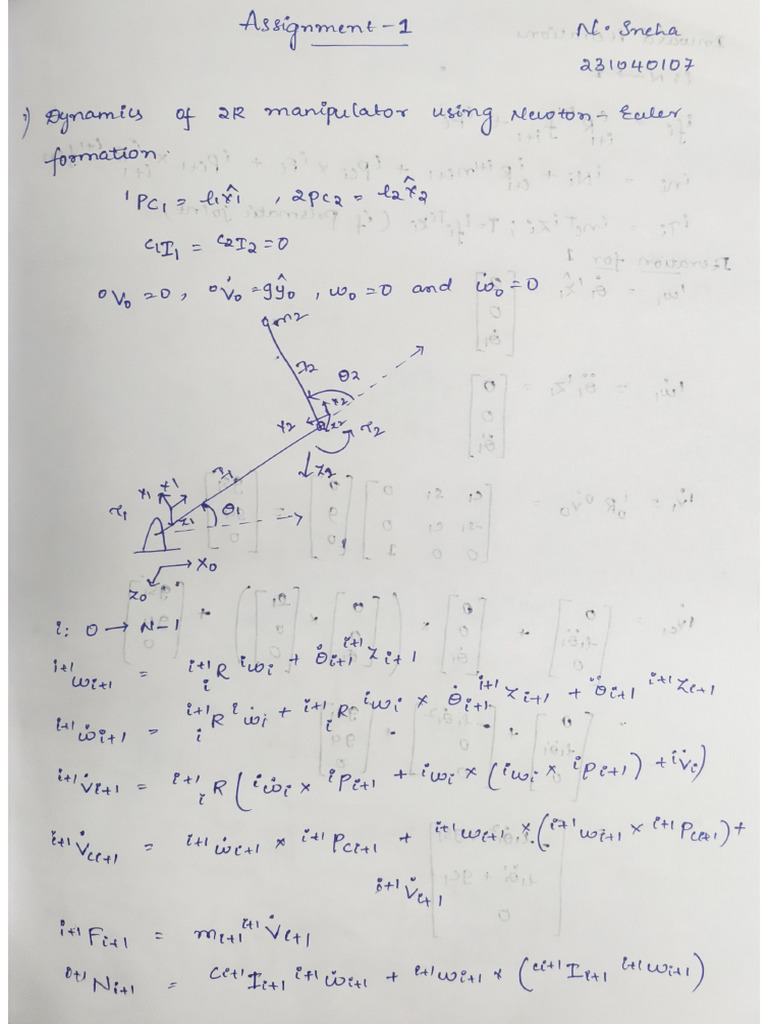 Assignment-1
N. Sneha
231040107
1) Dynamics of 2R manipulator using Newton-Euler
formation.
¹PC₁ = l₁x̂₁ , 2PC₂ = l₂x̂₂
C₁I₁ = C₂I₂ = 0
⁰V₀ = 0, ⁰V̇₀ = gŷ₀ , ω₀ = 0 and ω̇₀ = 0
m₂
θ₂
x₂
Y₂
τ₂
Z₂
τ₁
θ₁
Z₁
X₀
Z₀
i: 0 → N-1
ⁱ⁺¹ωᵢ₊₁ = ⁱ⁺¹ᵢR ⁱωᵢ + θ̇ᵢ₊₁ ⁱ⁺¹Zᵢ₊₁
ⁱ⁺¹ω̇ᵢ₊₁ = ⁱ⁺¹ᵢR ⁱω̇ᵢ + ⁱ⁺¹ᵢR ⁱωᵢ × θ̇ᵢ₊₁ ⁱ⁺¹Zᵢ₊₁ + θ̈ᵢ₊₁ ⁱ⁺¹Zᵢ₊₁
ⁱ⁺¹V̇ᵢ₊₁ = ⁱ⁺¹ᵢR (ⁱω̇ᵢ × ⁱPᵢ₊₁ + ⁱωᵢ × (ⁱωᵢ × ⁱPᵢ₊₁) + ⁱV̇ᵢ)
ⁱ⁺¹V̇cᵢ₊₁ = ⁱ⁺¹ω̇ᵢ₊₁ × ⁱ⁺¹Pcᵢ₊₁ + ⁱ⁺¹ωᵢ₊₁ × (ⁱ⁺¹ωᵢ₊₁ × ⁱ⁺¹Pcᵢ₊₁) +
ⁱ⁺¹V̇ᵢ₊₁
ⁱ⁺¹Fᵢ₊₁ = mᵢ₊₁ ⁱ⁺¹V̇ᵢ₊₁
ⁱ⁺¹Nᵢ₊₁ = ᶜⁱ⁺¹Iᵢ₊₁ ⁱ⁺¹ω̇ᵢ₊₁ + ⁱ⁺¹ωᵢ₊₁ × (ᶜⁱ⁺¹Iᵢ₊₁ ⁱ⁺¹ωᵢ₊₁)